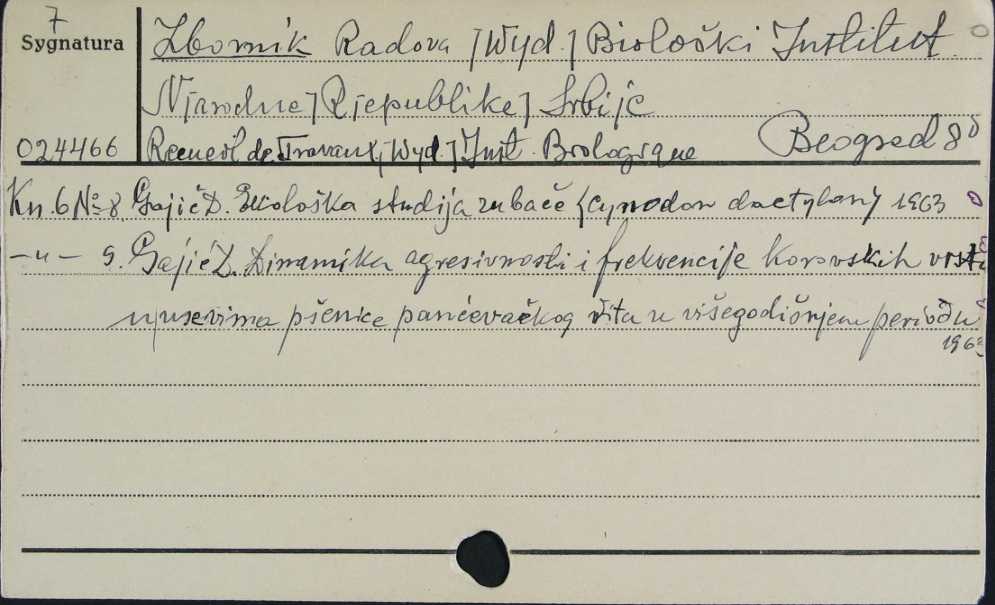 7
Sygnatura
Zbornik Radova [Wyd.] Biološki Institut
N[arodne] R[epublike] Srbije
024466 Recueil de Travaux, [Wyd.] Inst. Biologique Beograd 8°
Kn. 6 № 8. Gajić D. Ekološka studija zubače (cynodon dactylon) 1963
-„- 9. Gajić D. Dinamika agresivnosti i frekvencije korovskih vrsta
u usevima pšenice pančevačkog rita u višegodišnjem periodu
1963